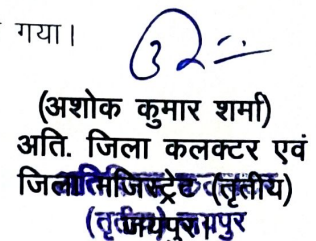 गया।
(अशोक कुमार शर्मा)
अति. जिला कलक्टर एवं
जिला मजिस्ट्रेट (तृतीय)
जयपुर।